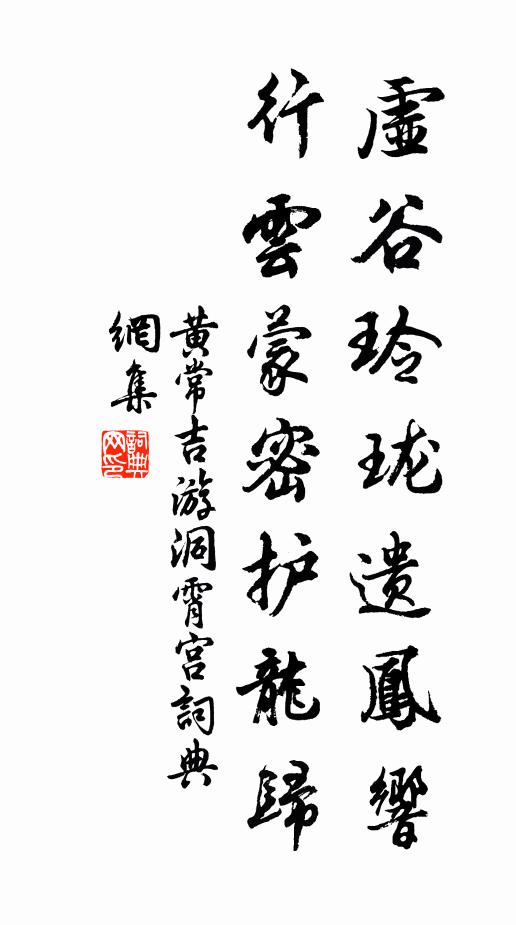 虛谷玲珑遗鳳響
行雲蒙密护龍歸
黄常吉游洞霄宫詞典
網集
詞典网印